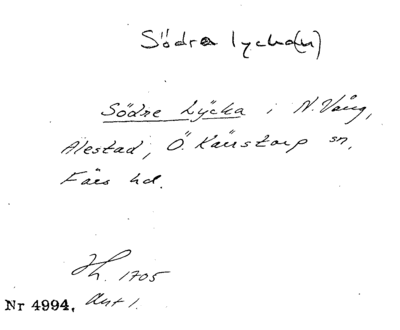 Södra lycka(n)
Södre Lÿcka i N. Vång,
Alestad, Ö. Kärrstorp sn,
Färs hd.
Lh. 1705
Akt 1.
Nr 4994,